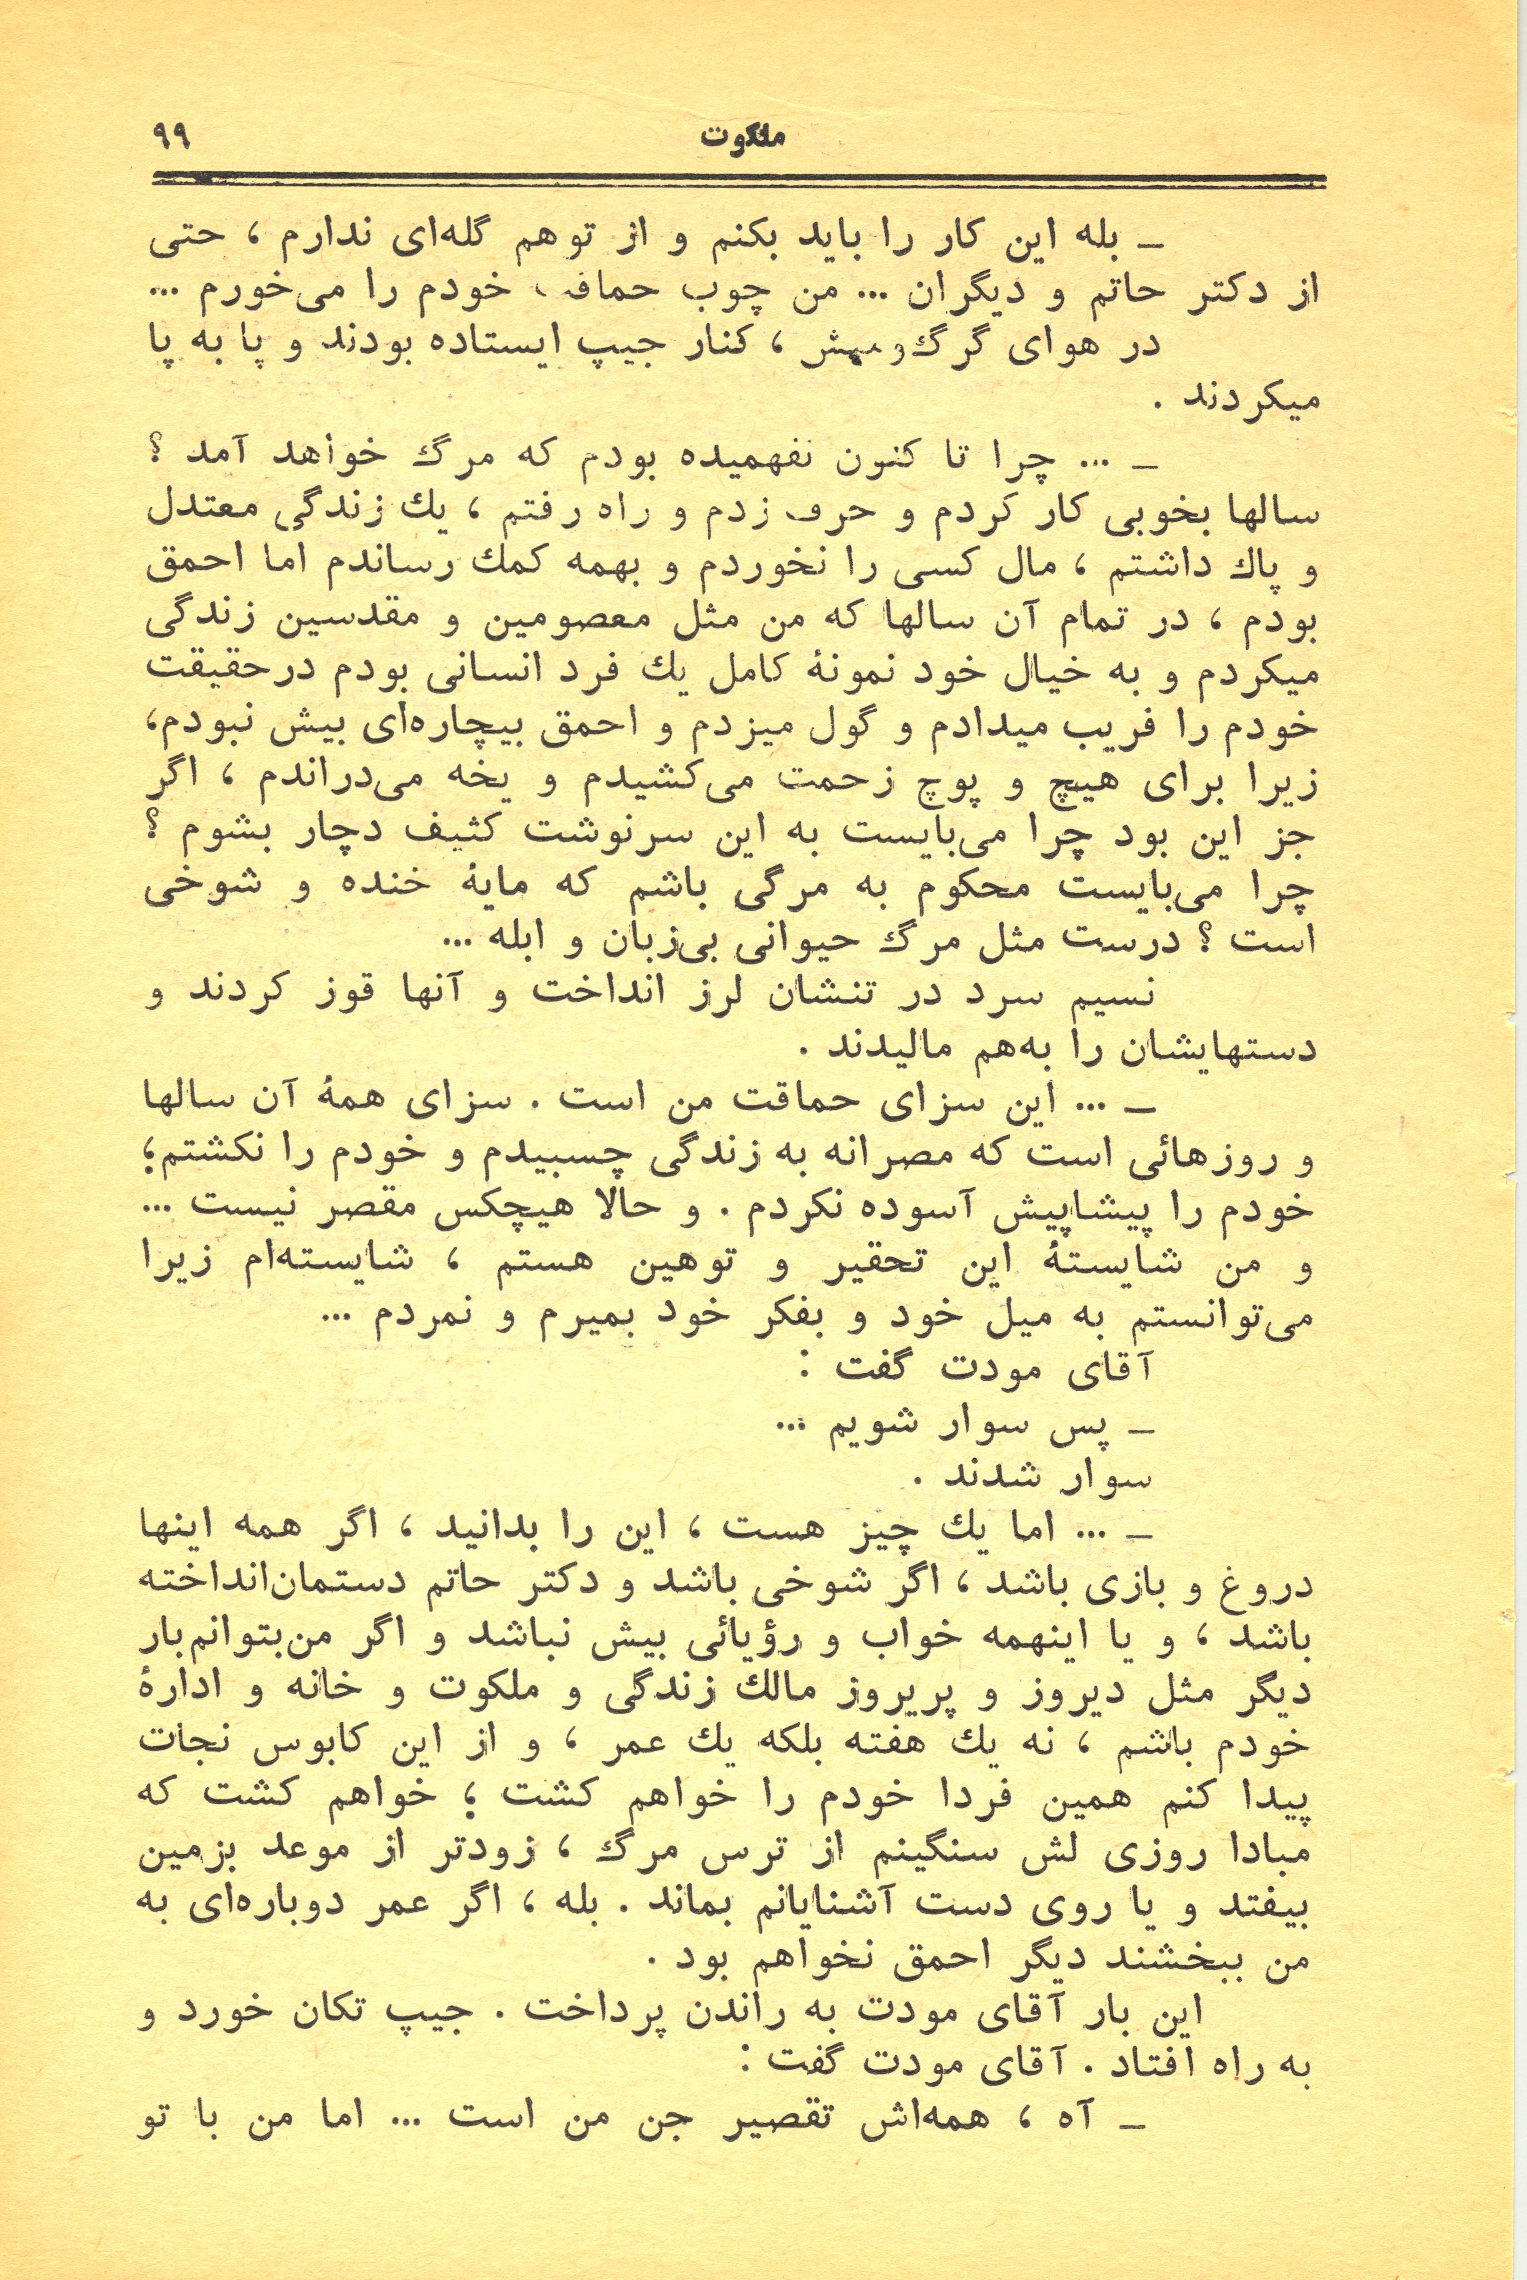 ملکوت ۹۹
ــ بله این کار را باید بکنم و از توهم گله‌ای ندارم ، حتی
از دکتر حاتم و دیگران ... من چوب حماقت خودم را می‌خورم ...
در هوای گرگ‌ومیش ، کنار جیپ ایستاده بودند و پا به پا
میکردند .
ــ ... چرا تا کنون نفهمیده بودم که مرگ خواهد آمد ؟
سالها بخوبی کار کردم و حرف زدم و راه رفتم ، یك زندگی معتدل
و پاك داشتم ، مال کسی را نخوردم و بهمه کمك رساندم اما احمق
بودم ، در تمام آن سالها که من مثل معصومین و مقدسین زندگی
میکردم و به خیال خود نمونهٔ کامل یك فرد انسانی بودم درحقیقت
خودم را فریب میدادم و گول میزدم و احمق بیچاره‌ای بیش نبودم،
زیرا برای هیچ و پوچ زحمت می‌کشیدم و یخه می‌دراندم ، اگر
جز این بود چرا می‌بایست به این سرنوشت کثیف دچار بشوم ؟
چرا می‌بایست محکوم به مرگی باشم که مایهٔ خنده و شوخی
است ؟ درست مثل مرگ حیوانی بی‌زبان و ابله ...
نسیم سرد در تنشان لرز انداخت و آنها قوز کردند و
دستهایشان را به‌هم مالیدند .
ــ ... این سزای حماقت من است . سزای همهٔ آن سالها
و روزهائی است که مصرانه به زندگی چسبیدم و خودم را نکشتم؛
خودم را پیشاپیش آسوده نکردم . و حالا هیچکس مقصر نیست ...
و من شایستهٔ این تحقیر و توهین هستم ، شایسته‌ام زیرا
می‌توانستم به میل خود و بفکر خود بمیرم و نمردم ...
آقای مودت گفت :
ــ پس سوار شویم ...
سوار شدند .
ــ ... اما یك چیز هست ، این را بدانید ، اگر همه اینها
دروغ و بازی باشد ، اگر شوخی باشد و دکتر حاتم دستمان‌انداخته
باشد ، و یا اینهمه خواب و رؤیائی بیش نباشد و اگر من‌بتوانم‌بار
دیگر مثل دیروز و پریروز مالك زندگی و ملکوت و خانه و ادارهٔ
خودم باشم ، نه یك هفته بلکه یك عمر ، و از این کابوس نجات
پیدا کنم همین فردا خودم را خواهم کشت ؛ خواهم کشت که
مبادا روزی لش سنگینم از ترس مرگ ، زودتر از موعد بزمین
بیفتد و یا روی دست آشنایانم بماند . بله ، اگر عمر دوباره‌ای به
من ببخشند دیگر احمق نخواهم بود .
این بار آقای مودت به راندن پرداخت . جیپ تکان خورد و
به راه افتاد . آقای مودت گفت :
ــ آه ، همه‌اش تقصیر جن من است ... اما من با تو